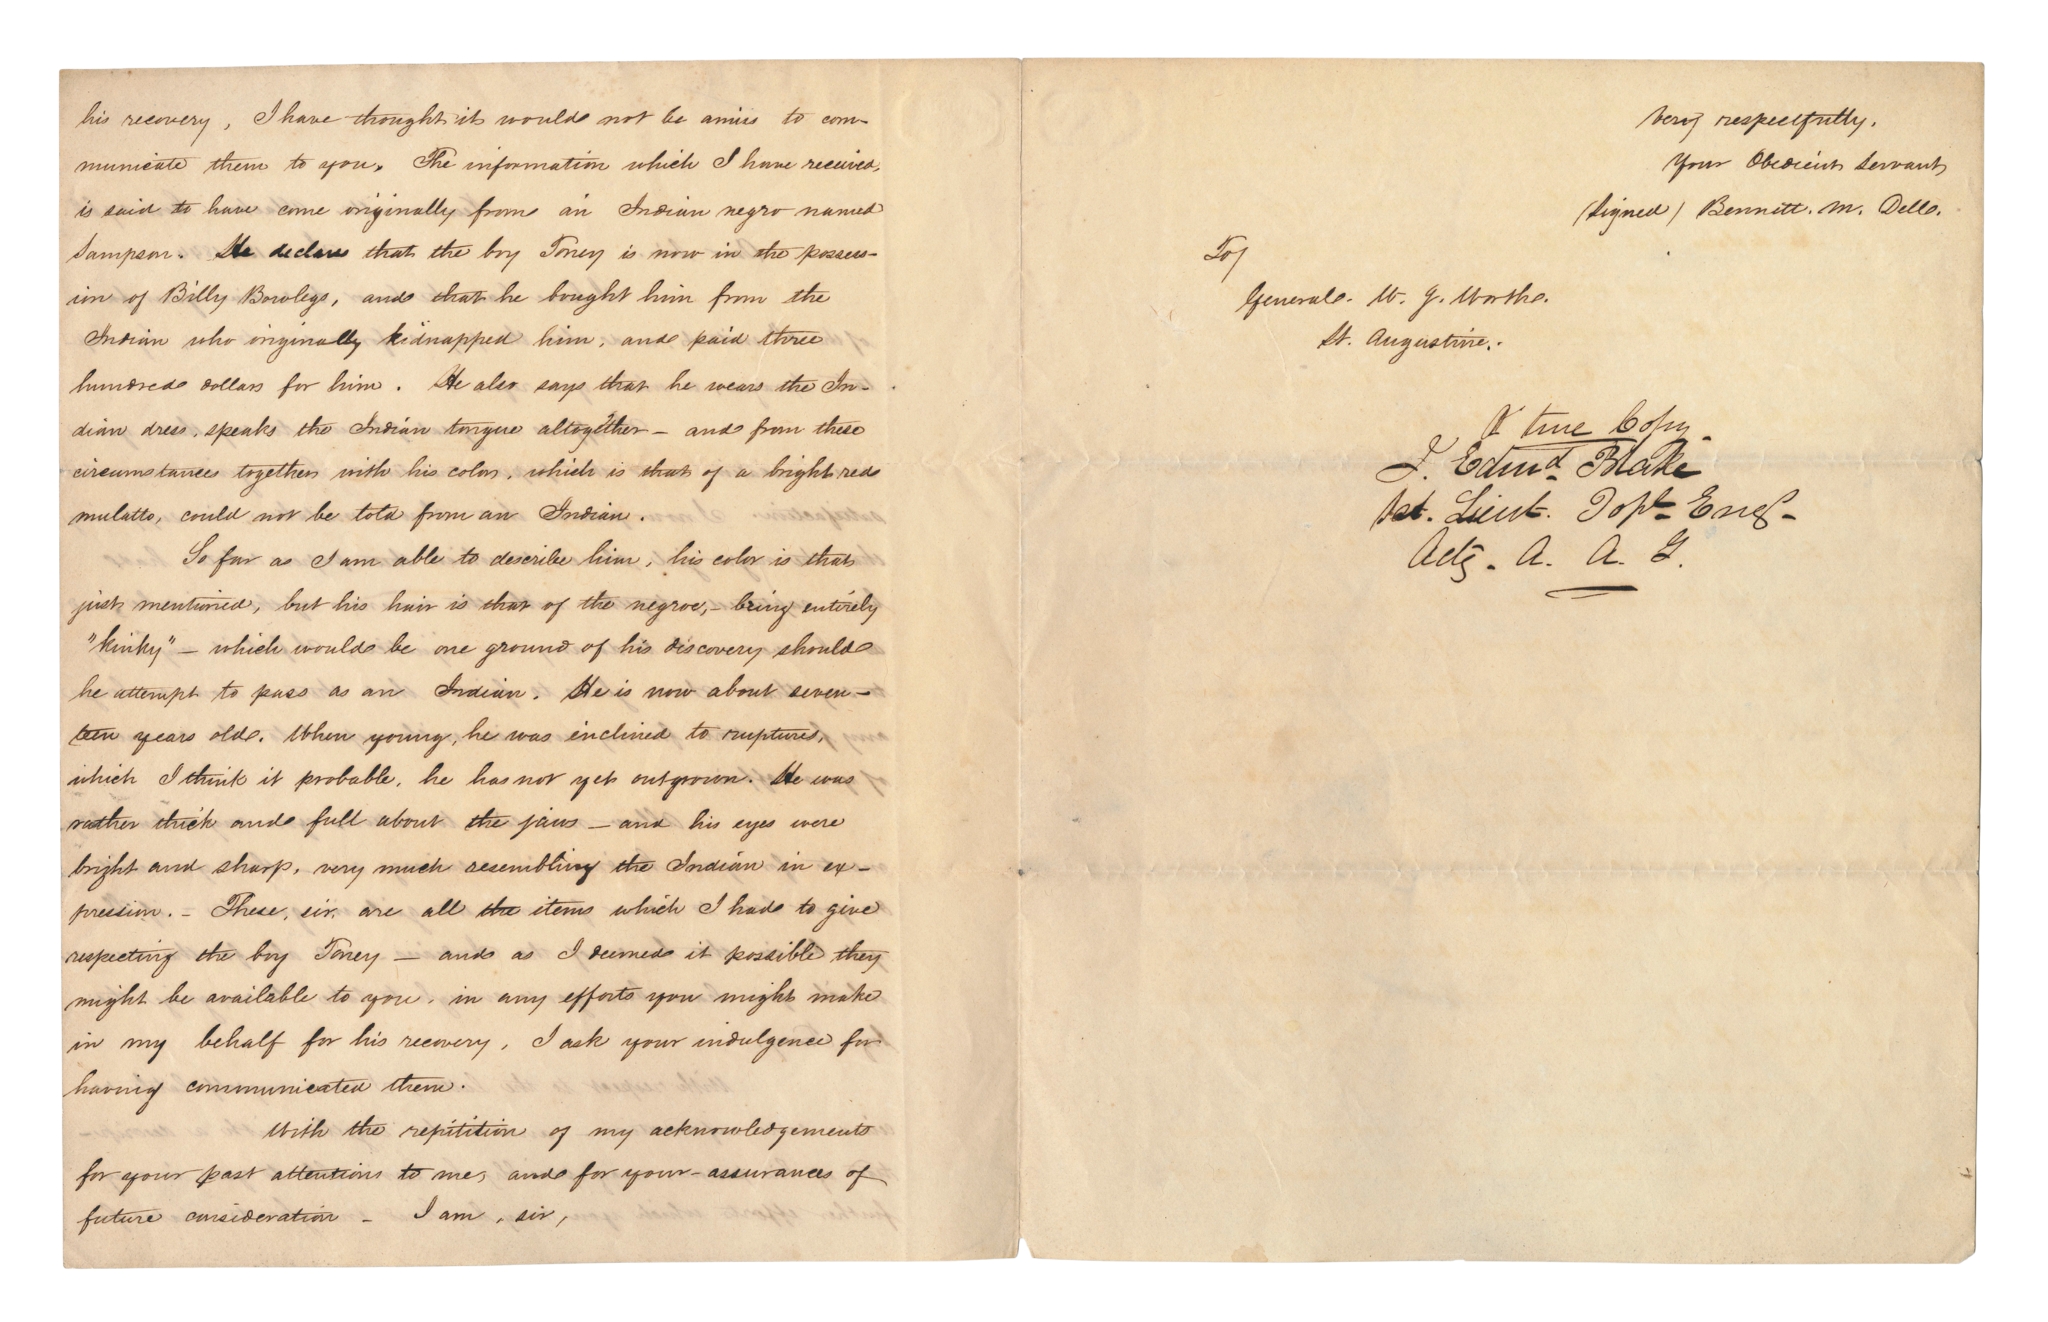 his recovery, I have thought it would not be amiss to com-
municate them to you. The information which I have received,
is said to have come originally from an Indian negro named
Sampson. He declares that the boy Toney is now in the possess-
ion of Billy Bowlegs, and that he bought him from the
Indian who originally kidnapped him, and paid three
hundred dollars for him. He also says that he wears the In-
dian dress, speaks the Indian tongue altogether — and from these
circumstances together with his color, which is that of a bright red
mulatto, could not be told from an Indian.
So far as I am able to describe him, his color is that
just mentioned, but his hair is that of the negroe, — being entirely
"kinky" — which would be one ground of his discovery should
he attempt to pass as an Indian. He is now about seven-
teen years old. When young, he was inclined to ruptures,
which I think it probable, he has not yet outgrown. He was
rather thick and full about the jaws — and his eyes were
bright and sharp, very much resembling the Indian in ex-
pression. — These, sir, are all the items which I had to give
respecting the boy Toney — and as I deemed it possible they
might be available to you, in any efforts you might make
in my behalf for his recovery, I ask your indulgence for
having communicated them.
With the repitition of my acknowledgements
for your past attentions to me, and for your assurances of
future consideration — I am, sir,
Very respectfully.
Your Obedient Servant,
(Signed) Bennett. M. Dell.
To/
General. W. J. Worth.
St. Augustine.
A true Copy.
J. Edmd Blake
1st. Lieut. Topl Engs
Actg. A. A. G.